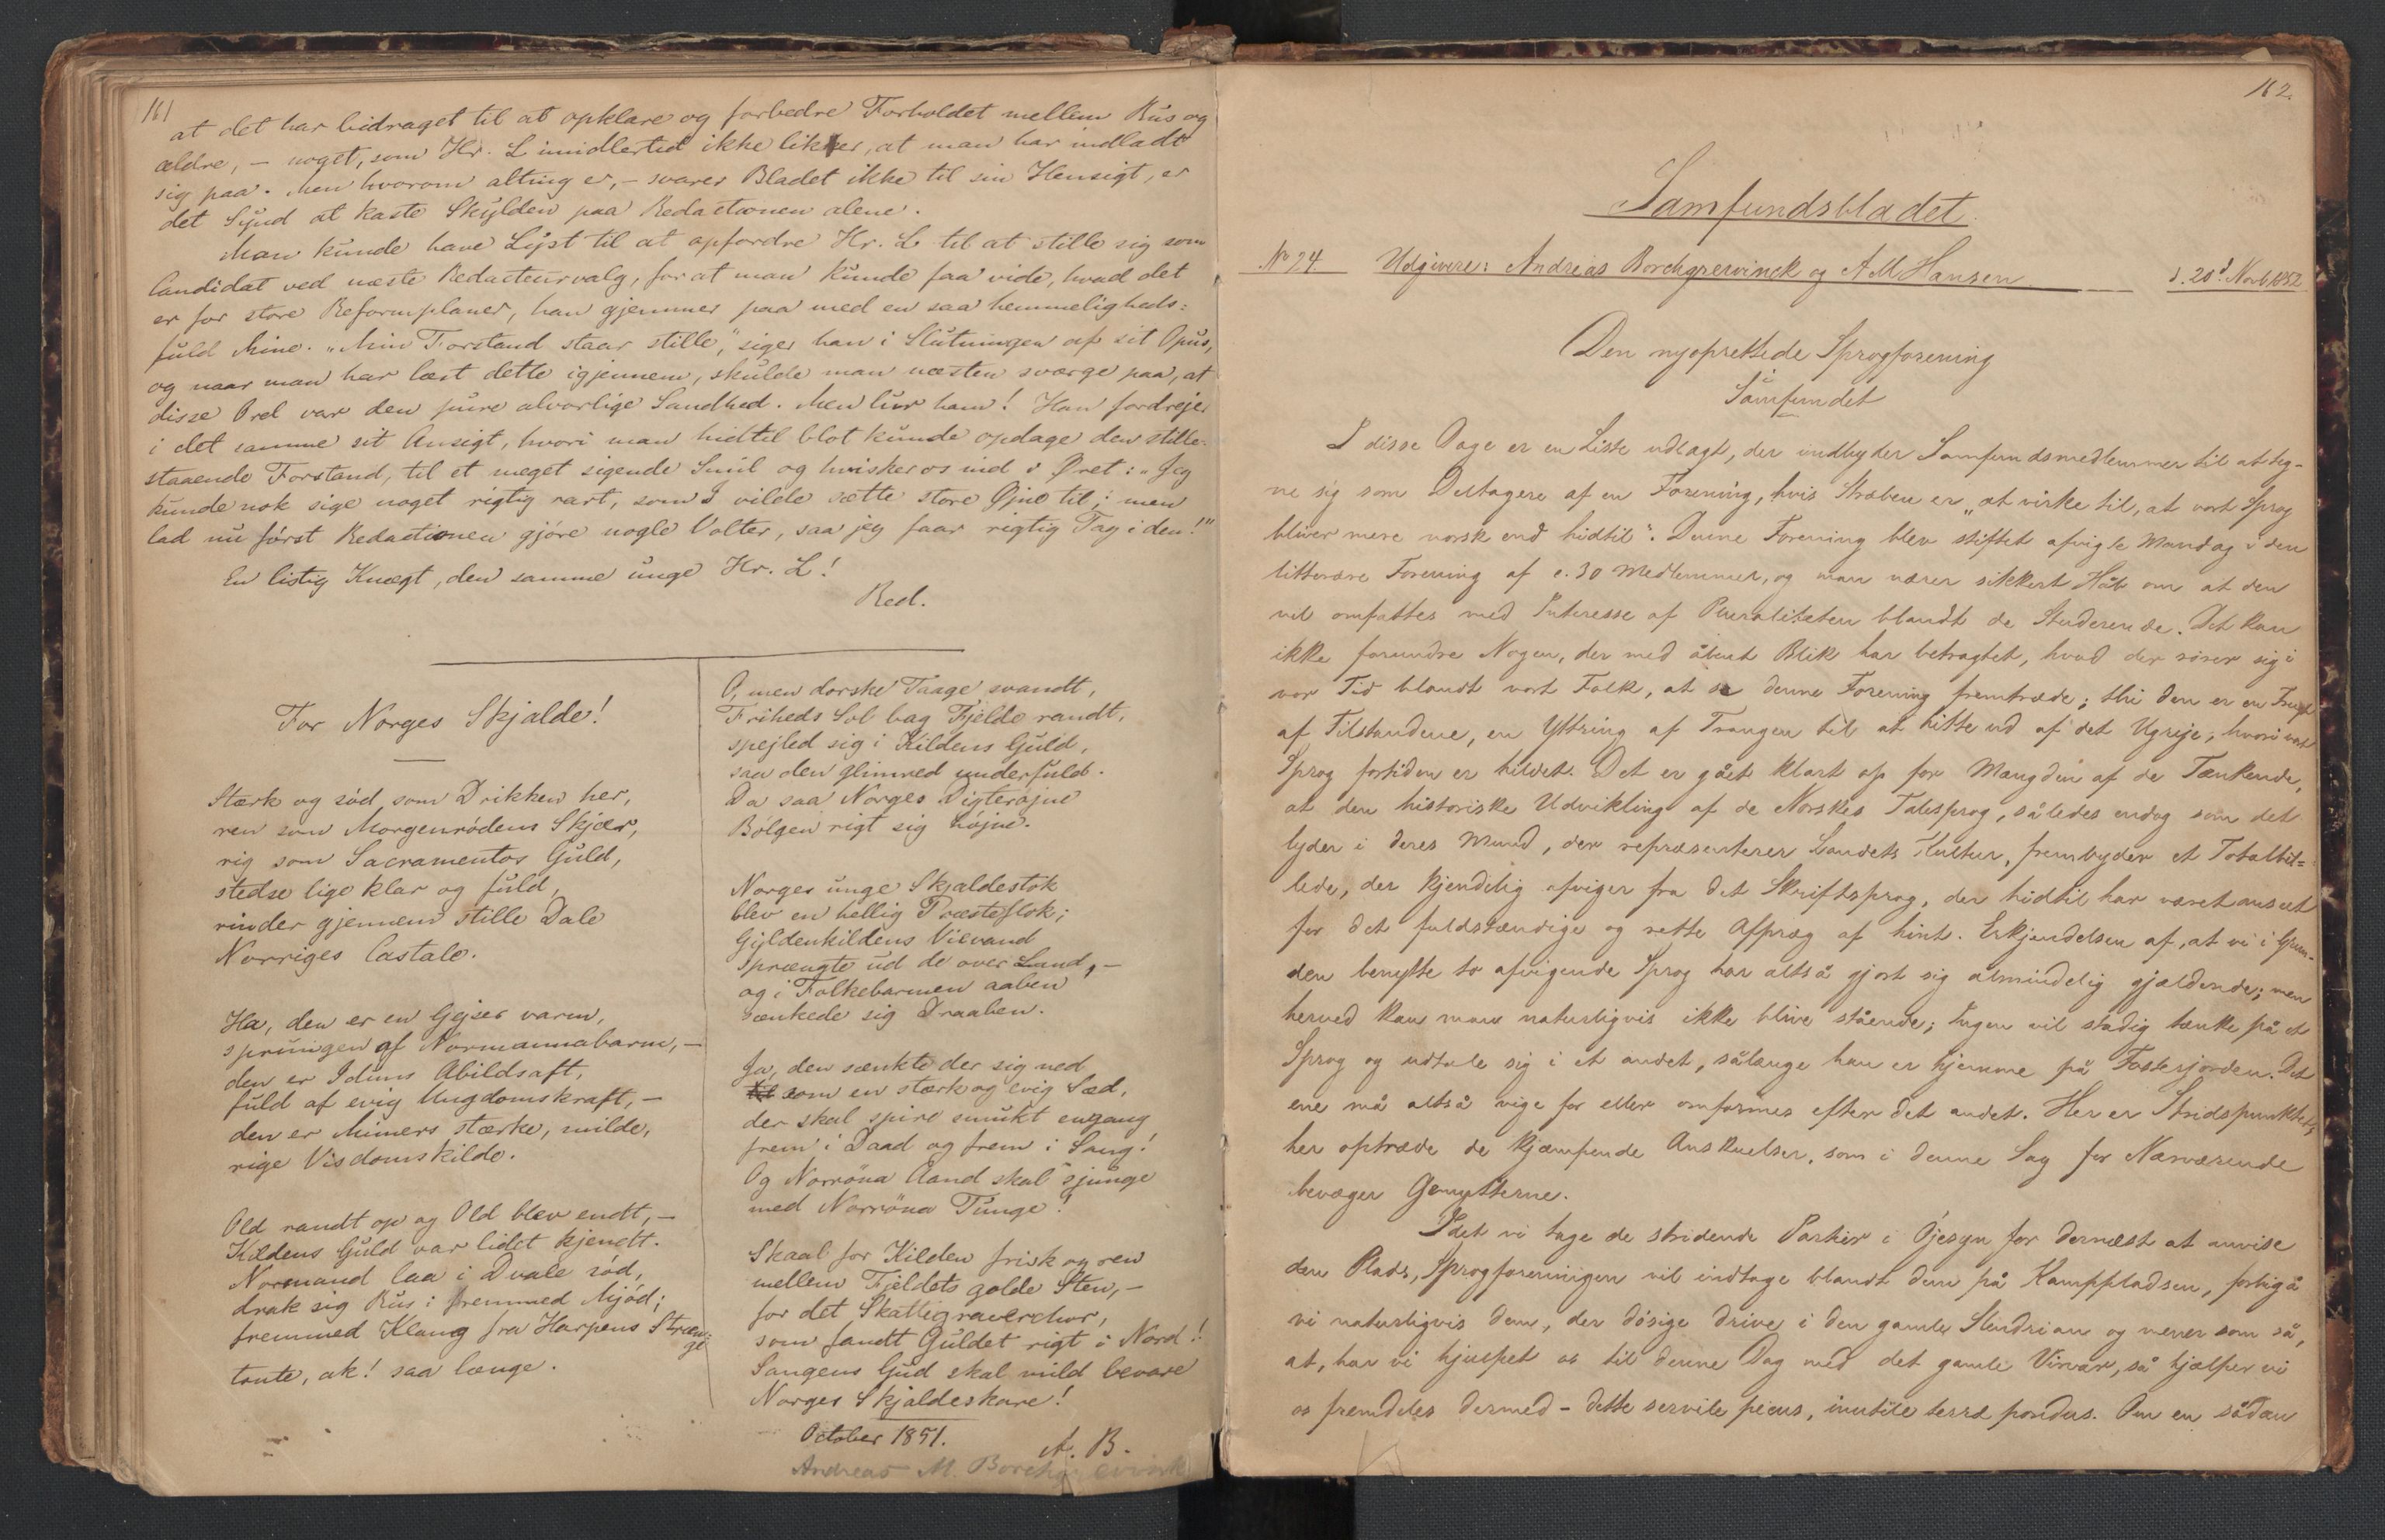 161
at det har bidraget til at opklare og forbedre Forholdet mellem Rus og
ældre, – noget, som Hr. L imidlertid ikke liker, at man har indladt
sig paa. Men hvorom alting er, – svarer Bladet ikke til sin Hensigt, er
det Synd at kaste Skylden paa Redactionen alene.
Man kunde have Lyst til at opfordre Hr. L til at stille sig som
Candidat ved næste Redacteurvalg, for at man kunde faa vide, hvad det
er for store Reformplaner, han gjemmer paa med en saa hemmeligheds:
fuld Mine. „Min Forstand staar stille," siger han i Slutningen af sit Opus,
og naar man har læst dette igjennem, skulde man næsten sværge paa, at
disse Ord var den pure alvorlige Sandhed. Men lur ham! Han fordrejer
i det samme sit Ansigt, hvori man hidtil blot kunde opdage den stille-
staaende Forstand, til et meget sigende Smil og hvisker os ind i Øret: „Jeg
kunde nok sige noget rigtig rart, som I vilde sætte store Øjne til; men
lad nu først Redactionen gjøre nogle Volter, saa jeg faar rigtig Tag i den!"
En listig Knægt, den samme unge Hr. L!
Red.
For Norges Skjalde!
Stærk og sød som Drikken her,
ren som Morgenrødens Skjær,
rig som Sacramentos Guld,
stedse lige klar og fuld,
rinder gjennem stille Dale
Norriges Castale.
Ha, den er en Gejser varm,
sprungen af Normannabarm, –
den er Iduns Abildsaft,
fuld af evig Ungdomskraft, –
den er Mimers stærke, milde,
rige Visdomskilde.
Old randt op og Old blev endt, –
Kildens Guld var lidet kjendt.
Normand laa i Dvale sød,
drak sig Rus i fremmed Mjød;
fremmed Klang fra Harpens Stræn:
ge
tonte, ak! saa længe.
O, men dorske Taage svandt,
Friheds Sol bag Fjelde randt,
spejled sig i Kildens Guld,
saa den glimred underfuld.
Da saa Norges Digterøjne
Bølgen rigt sig højne.
Norges unge Skjaldeflok
blev en hellig Præsteflok;
Gyldenkildens Vievand
sprængte ud de over Land, –
og i Folkebarmen aaben
sænkede sig Draaben.
Ja, den sænkte der sig ned
som en stærk og evig Sæd,
der skal spire smukt engang
frem i Daad og frem i Sang!
Og Norrøna Aand skal sjunge
med Norrøna Tunge!
Skaal for Kilden frisk og ren
mellem Fjeldets golde Sten, –
for det Skattegraverchor,
som fandt Guldet rigt i Nord!
Sangens Gud skal mild bevare
Norges Skjaldeskare!
October 1851.
A. B.
Andreas M. Borchgrevink
162.
Samfundsbladet.
No 24 Udgivere: Andreas Borchgrevinck og A M Hansen d. 20d. Novb. 1852
Den nyoprettede Sprogforening
i
Samfundet
I disse Dage er en Liste udlagt, der indbyder Samfundsmedlemmer til at teg-
ne sig som Deltagere af en Forening, hvis Stræben er „at virke til, at vort Sprog
bliver mere norsk end hidtil". Denne Forening blev stiftet afvigte Mandag i den
litterære Forening af c. 30 Medlemmer, og man nærer sikkert Håb om at den
vil omfattes med Interesse af Pluraliteten blandt de Studerende. Det kan
ikke forundre Nogen, der med åbent Blik har betragtet, hvad der rører sig i
vor Tid blandt vort Folk, at se denne Forening fremtræde; thi den er en Frugt
af Tilstandene, en Yttring af Trangen til at hitte ud af det Ugreje, hvori vort
Sprog fortiden er hildet. Det er gået klart op for Mængden af de Tænkende,
at den historiske Udvikling af de Norskes Talesprog, således endog som det
lyder i deres Mund, der repræsenterer Landets Kultur, frembyder et Totalbil=
lede, der kjendelig afviger fra det Skriftsprog, der hidtil har været anseet
for det fuldstændige og rette Afpræg af hint. Erkjendelsen af, at vi i Grun-
den benytte to afvigende Sprog har altså gjort sig almindelig gjældende; men
herved kan man naturligvis ikke blive stående; Ingen vil stadig tænke på et
Sprog og udtale sig i et andet, sålænge han er hjemme på Fosterjorden. Det
ene må altså vige for eller omformes efter det andet. Her er Stridspunktet,
her optræde de kjæmpende Anskuelser, som i denne Sag for Nærværende
bevæger Gemytterne.
Idet vi tage de stridende Partier i Øjesyn for dernæst at anvise
den Plads, Sprogforeningen vil indtage blandt dem på Kamppladsen, forbigå
vi naturligvis dem, der døsige drive i den gamle Slendrian og mener som så,
at, har vi hjulpet os til denne Dag med det gamle Virvar, så hjælper vi
os fremdeles dermed – dette servile pecus, inutile terræ pondus. Om en sådan